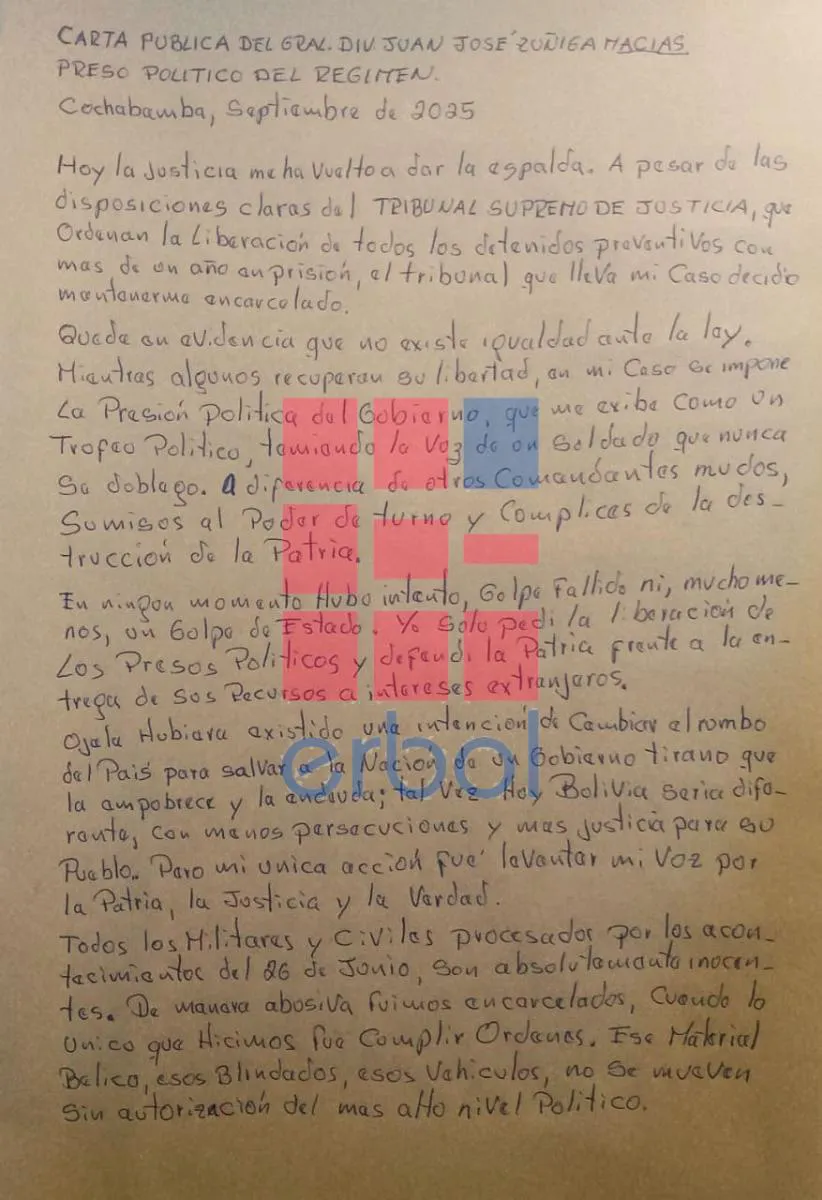 CARTA PUBLICA DEL GRAL. DIV. JUAN JOSÉ ZUÑIGA MACIAS
PRESO POLITICO DEL REGIMEN.
Cochabamba, Septiembre de 2025
Hoy la Justicia me ha Vuelto a dar la espalda. A pesar de las
disposiciones claras del TRIBUNAL SUPREMO DE JUSTICIA, que
Ordenan la Liberación de todos los detenidos preventivos con
mas de un año en prisión, el tribunal que lleva mi Caso decidio
mantenerme encarcelado.
Queda en evidencia que no existe igualdad ante la ley.
Mientras algunos recuperan su libertad, en mi Caso se impone
La Presión Politica del Gobierno, que me exibe Como un
Trofeo Politico, temiendo la Voz de un Soldado que nunca
Se doblego. A diferencia de otros Comandantes mudos,
Sumisos al Poder de turno y Complices de la des-
trucción de la Patria.
En ningun momento Hubo intento, Golpe Fallido ni, mucho me-
nos, un Golpe de Estado. Yo Solo pedi la liberación de
Los Presos Politicos y defendi la Patria frente a la en-
trega de sus Recursos a intereses extranjeros.
Ojala Hubiera existido una intención de Cambiar el rumbo
del Pais para salvar a la Nación de un Gobierno tirano que
la empobrece y la endeuda; tal Vez Hoy Bolivia seria dife-
rente, Con menos persecuciones y mas justicia para su
Pueblo. Pero mi unica acción fué levantar mi Voz por
la Patria, la Justicia y la Verdad.
Todos los Militares y Civiles procesados por los acon-
tecimientos del 26 de Junio, son absolutamente inocen-
tes. De manera abusiva fuimos encarcelados, Cuando lo
Unico que Hicimos fue Complir Ordenes. Ese Material
Belico, esos Blindados, esos Vehiculos, no Se mueven
Sin autorización del mas alto nivel Politico.
erbol